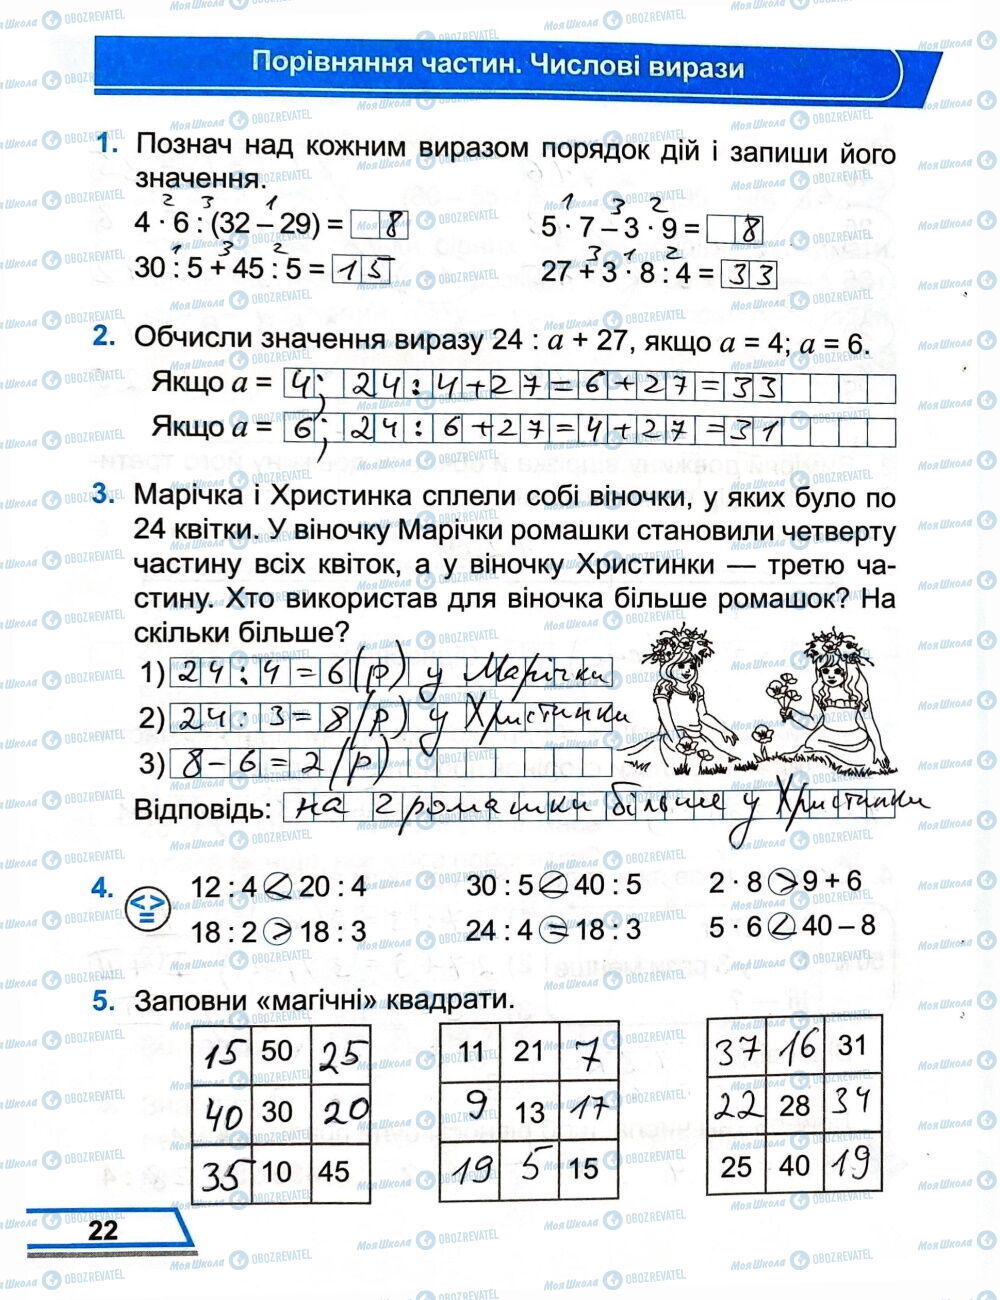 Порівняння частин. Числові вирази
1. Познач над кожним виразом порядок дій і запиши його
значення.
2 3 1
4 · 6 : (32 – 29) = 8
1 3 2
5 · 7 – 3 · 9 = 8
1 3 2
30 : 5 + 45 : 5 = 15
3 1 2
27 + 3 · 8 : 4 = 33
2. Обчисли значення виразу 24 : a + 27, якщо a = 4; a = 6.
Якщо a = 4; 24 : 4 + 27 = 6 + 27 = 33
Якщо a = 6; 24 : 6 + 27 = 4 + 27 = 31
3. Марічка і Христинка сплели собі віночки, у яких було по
24 квітки. У віночку Марічки ромашки становили четверту
частину всіх квіток, а у віночку Христинки — третю ча-
стину. Хто використав для віночка більше ромашок? На
скільки більше?
1) 24 : 4 = 6 (р) у Марічки
2) 24 : 3 = 8 (р) у Христинки
3) 8 – 6 = 2 (р)
Відповідь: на 2 ромашки більше у Христинки
4. < > =
12 : 4 < 20 : 4
30 : 5 < 40 : 5
2 · 8 > 9 + 6
18 : 2 > 18 : 3
24 : 4 = 18 : 3
5 · 6 < 40 – 8
5. Заповни «магічні» квадрати.
15 50 25
40 30 20
35 10 45
11 21 7
9 13 17
19 5 15
37 16 31
22 28 34
25 40 19
22
МояШкола OBOZREVATEL